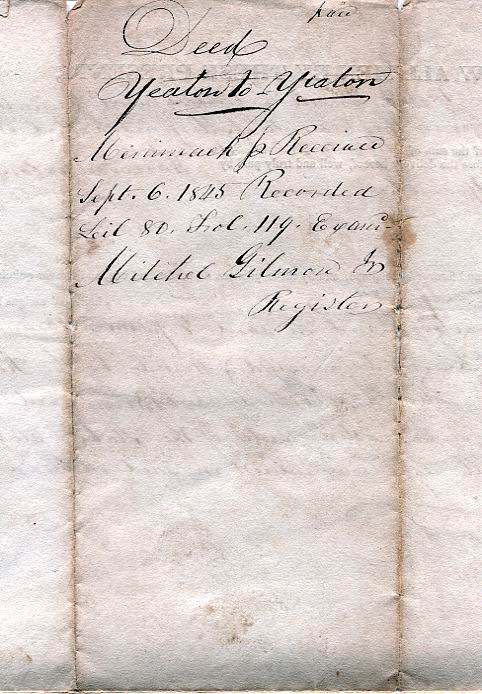 paid
Deed
Yeaton to Yeaton
Merrimack ss Received
Sept. 6. 1845 Recorded
Lib 80. Fol. 119. Exami-
Mitchel Gilmore Jr
Register